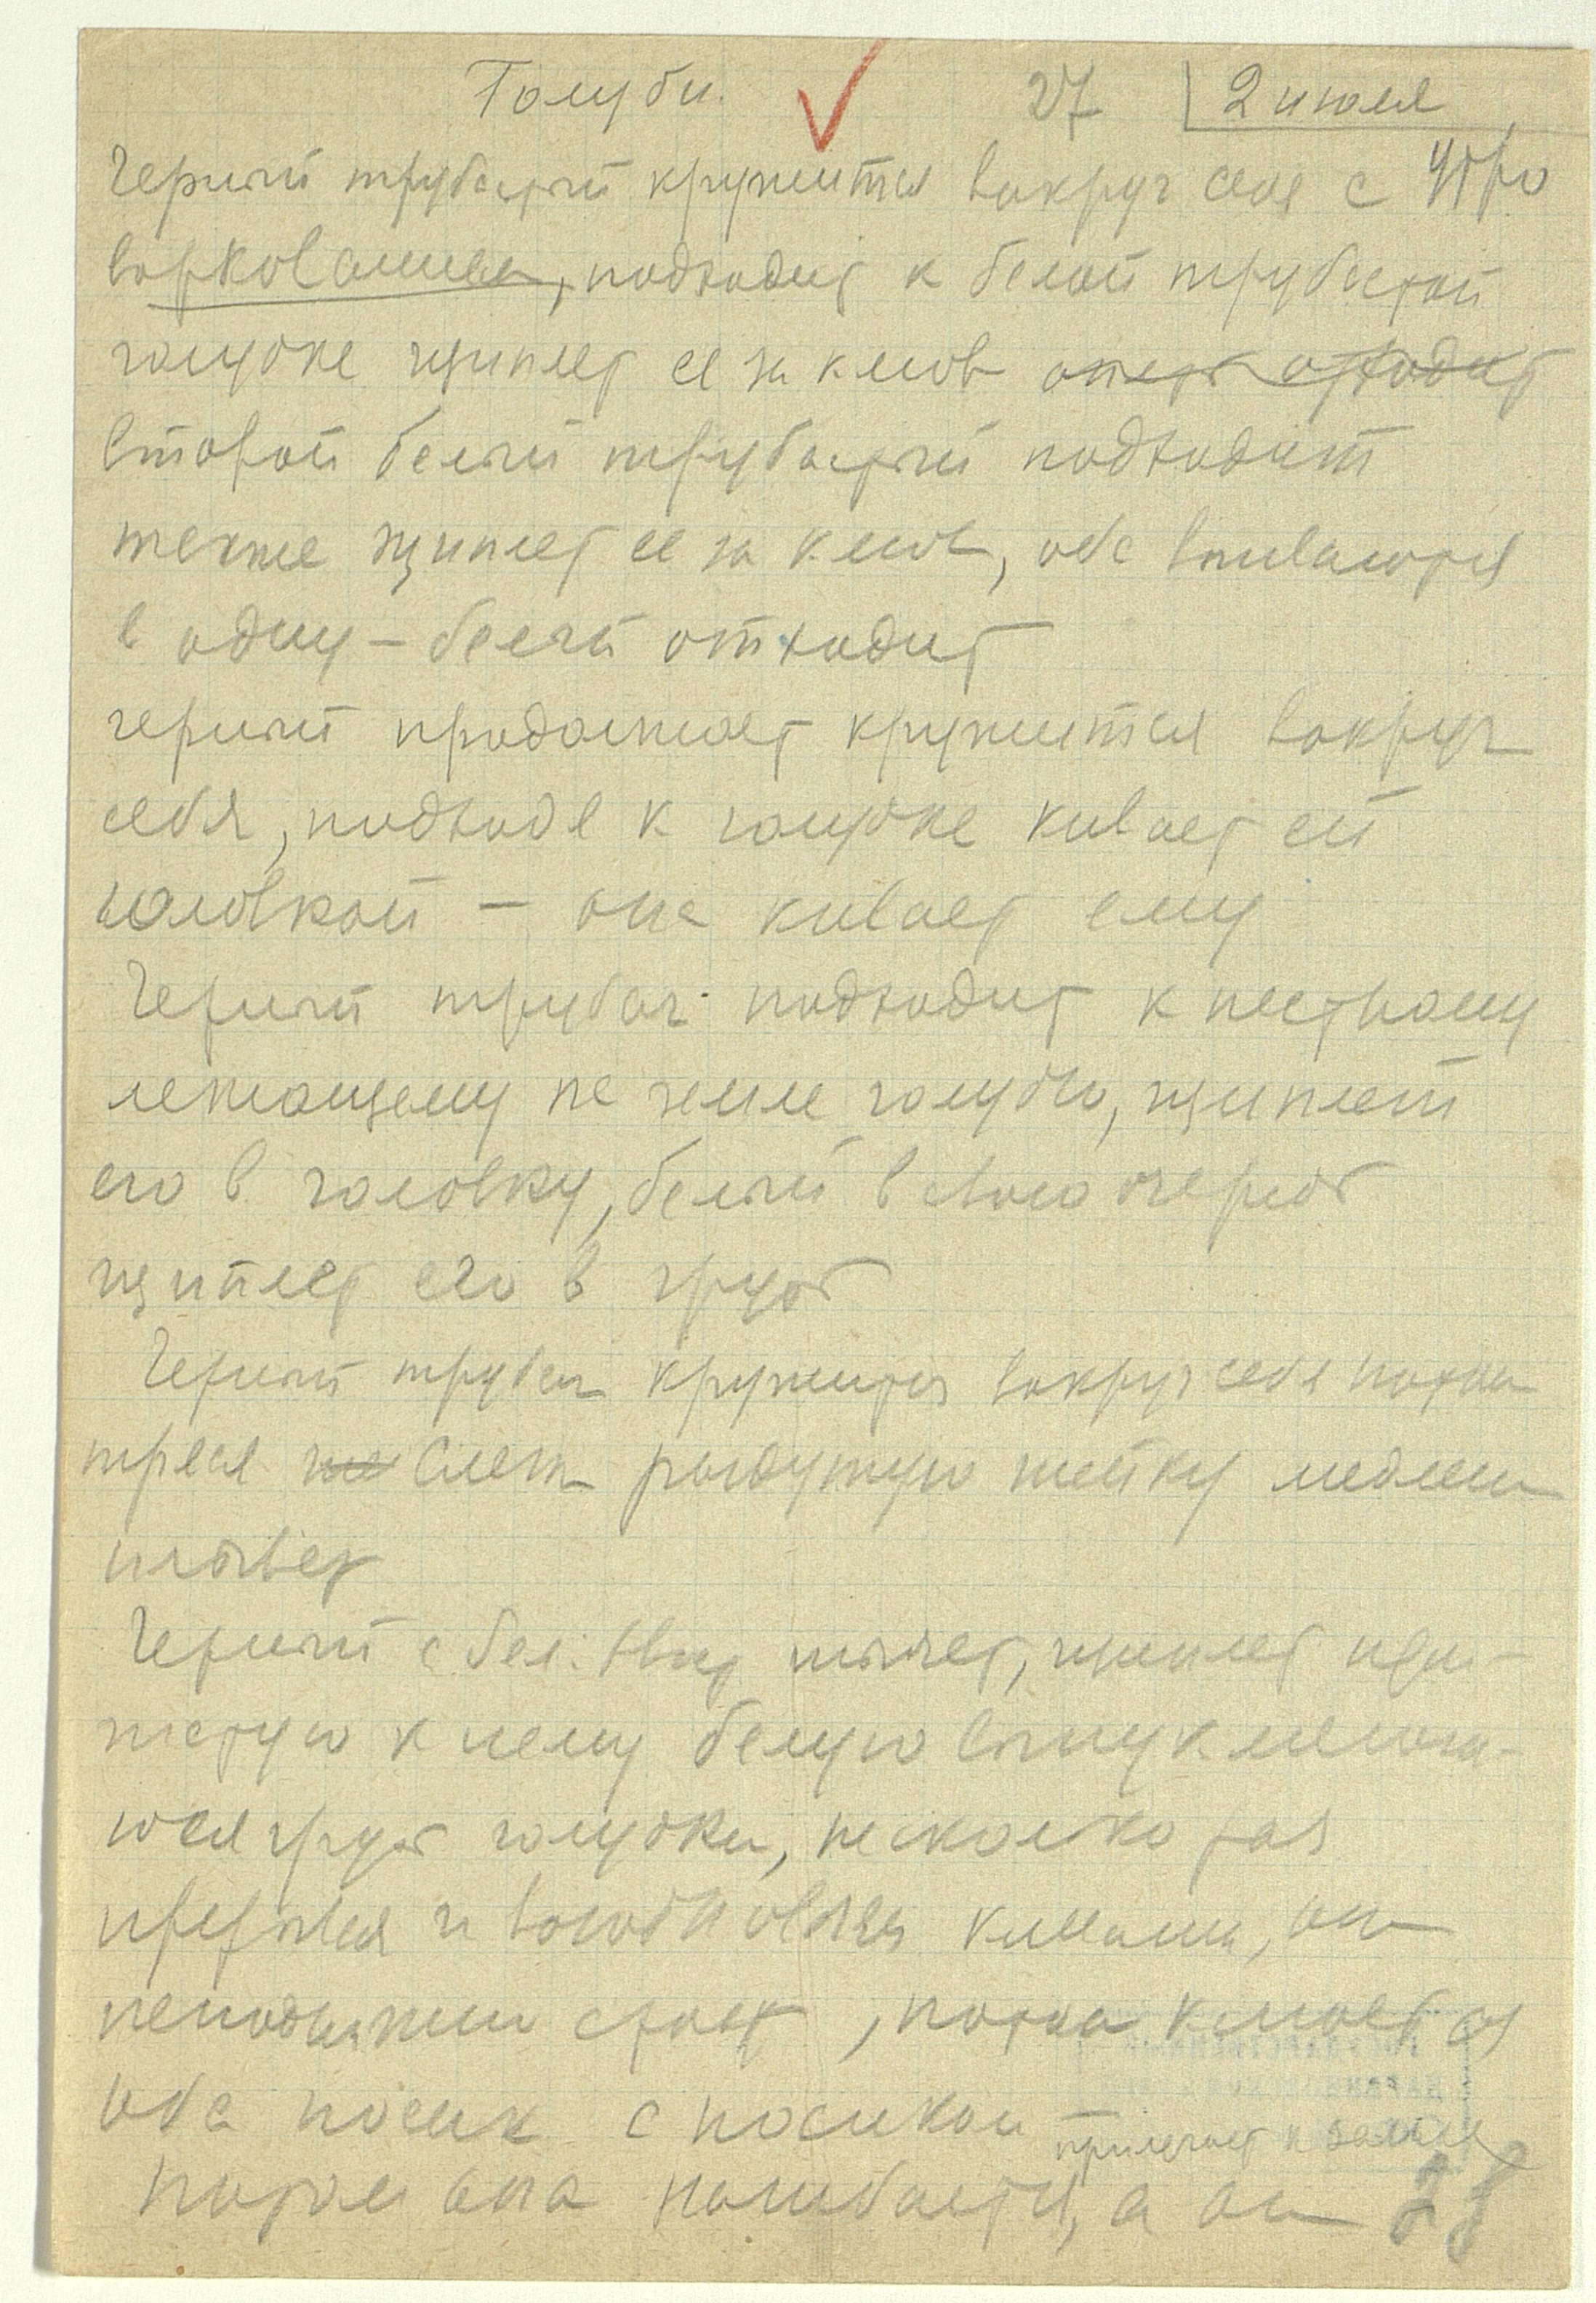 Голуби. 27 2 июля
Черный трубастый кружится вокруг себя с утро
воркованием, подходит к белой трубастой
голубке щиплет ее за клюв опять отходит
второй белый трубастый подходит
также щиплет ее за клюв, оба впиваются
в одну – белый отходит
черный продолжает кружится вокруг
себя, подходя к голубке кивает ей
головкой – она кивает ему
Черный трубач подходит к пестрому
лежащему на земле голубю, щиплет
его в головку, белый в свою очередь
щиплет его в грудь
Черный трубач кружится вокруг себя потом
тряся слегка раздутую шейку медленно
Черный с бел. щиплет
к нему белую
грудь голубки, несколько раз
прерывая и возобновляя он
неподвижно стоит, потом клюются
оба носик с носиком
прилегает к земле
Потом она нагибается, а он 28